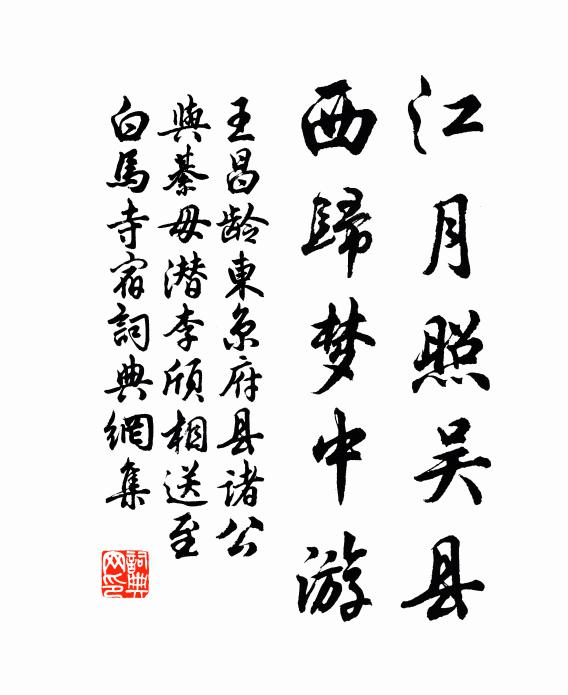 江月照吴县
西歸梦中游
王昌龄東京府县诸公
與綦毋潜李颀相送至
白馬寺宿詞典網集
詞典
网印